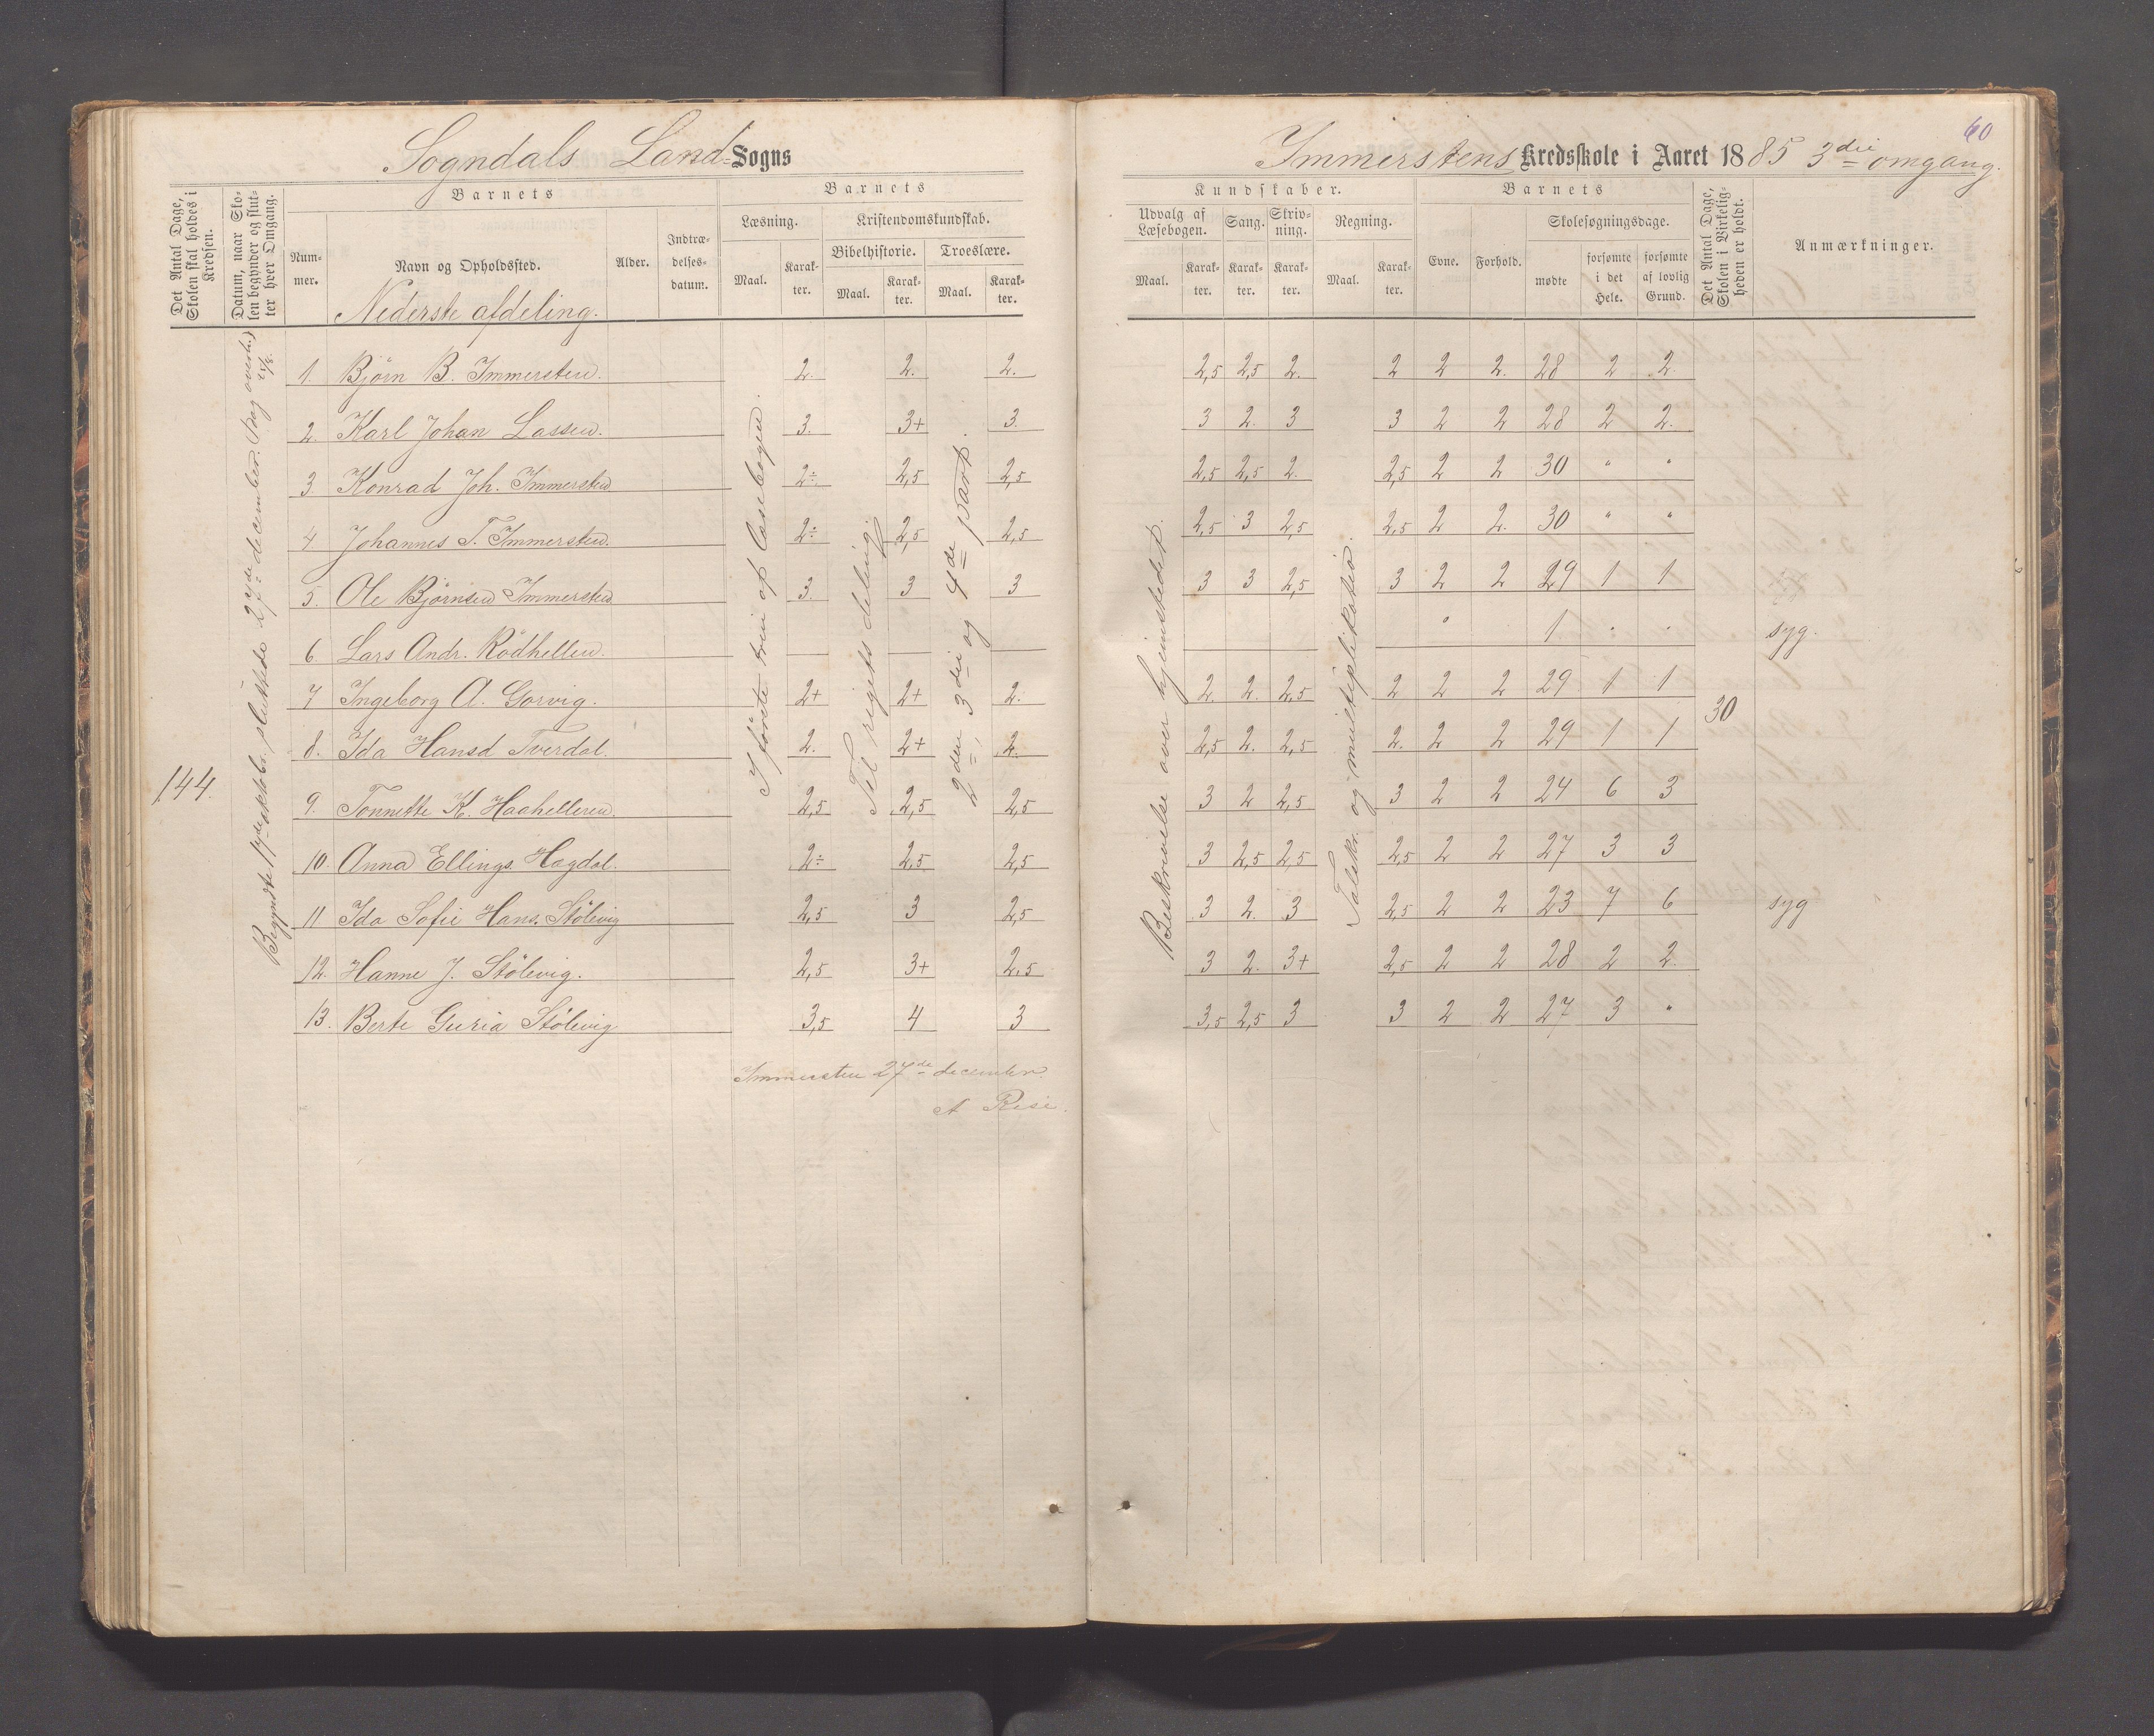 Sogndals Land=Sogns
Det Antal Dage, Skolen skal holdes i Kredsen.
Datum, naar Skolen begynder og slutter hver Omgang.
Barnets
Nummer.
Navn og Opholdssted.
Alder.
Indtrædelsesdatum.
Barnets
Læsning.
Maal.
Karakter.
Kristendomskundskab.
Bibelhistorie.
Maal.
Karakter.
Troeslære.
Maal.
Karakter.
Nederste afdeling.
144.
Begyndte 17de oktobr. sluttede 27de december.
I første trin af læsebogen.
Til rigets deling
2den, 3die og 4de part.
1. Bjørn B. Immersten. 2. 2. 2.
2. Karl Johan Lassen. 3. 3+ 3.
3. Konrad Joh. Immersten 2÷ 2,5 2,5
4. Johannes T. Immersten. 2÷ 2,5 2,5
5. Ole Bjørnsen Immersten 3. 3 3
6 Lars Andr. Rödhellen.
7 Ingeborg A. Gorvig. 2+ 2+ 2.
8. Ida Hansd Tverdal. 2. 2+ 2.
9. Tonnette K. Haahelleren. 2,5 2,5 2,5
10. Anna Ellings. Hagdal. 2÷ 2,5 2,5
11 Ida Sofie Hans. Stölevig 2,5 3 2,5
12. Hanne J. Stölevig. 2,5 3+ 2,5
13. Berte Guria Stölevig 3,5 4 3
Immersten 27de december.
A Rise.
60
Immerstens Kredsskole i Aaret 1885 3die omgang.
Kundskaber.
Udvalg af Læsebogen.
Maal.
Karakter.
Sang.
Karakter.
Skrivning.
Karakter.
Regning.
Maal.
Karakter.
Barnets
Evne.
Forhold.
Skolesøgningsdage.
mødte
forsømte i det Hele.
forsømte af lovlig Grund.
Det Antal Dage, Skolen i Virkeligheden er holdt.
Anmærkninger.
Beskrivelse over hjemstedet.
Talskr. og multiplikation.
2,5 2,5 2. 2 2 2. 28 2 2.
3 2. 3 3 2 2 28 2 2.
2,5 2,5 2. 2,5 2 2 30 " "
2,5 3 2,5 2,5 2 2. 30 " "
3 3 2,5 3 2 2 29 1 1
" 1 . . syg.
2. 2. 2,5 2 2 2 29 1 1
30
2,5 2. 2,5 2. 2 2 29 1 1
3 2 2,5 3 2 2 24 6 3
3 2,5 2,5 2,5 2 2 27 3 3
3 2. 3 2,5 2 2 23 7 6 syg
3 2. 3+ 2,5 2 2 28 2 2.
3,5 2,5 3 3 2 2 27 3 "